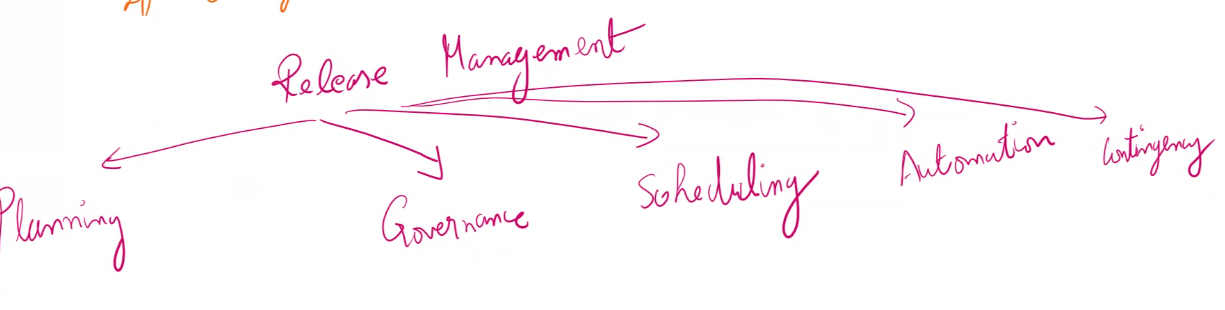 Release Management
Planning
Governance
Scheduling
Automation
Contingency